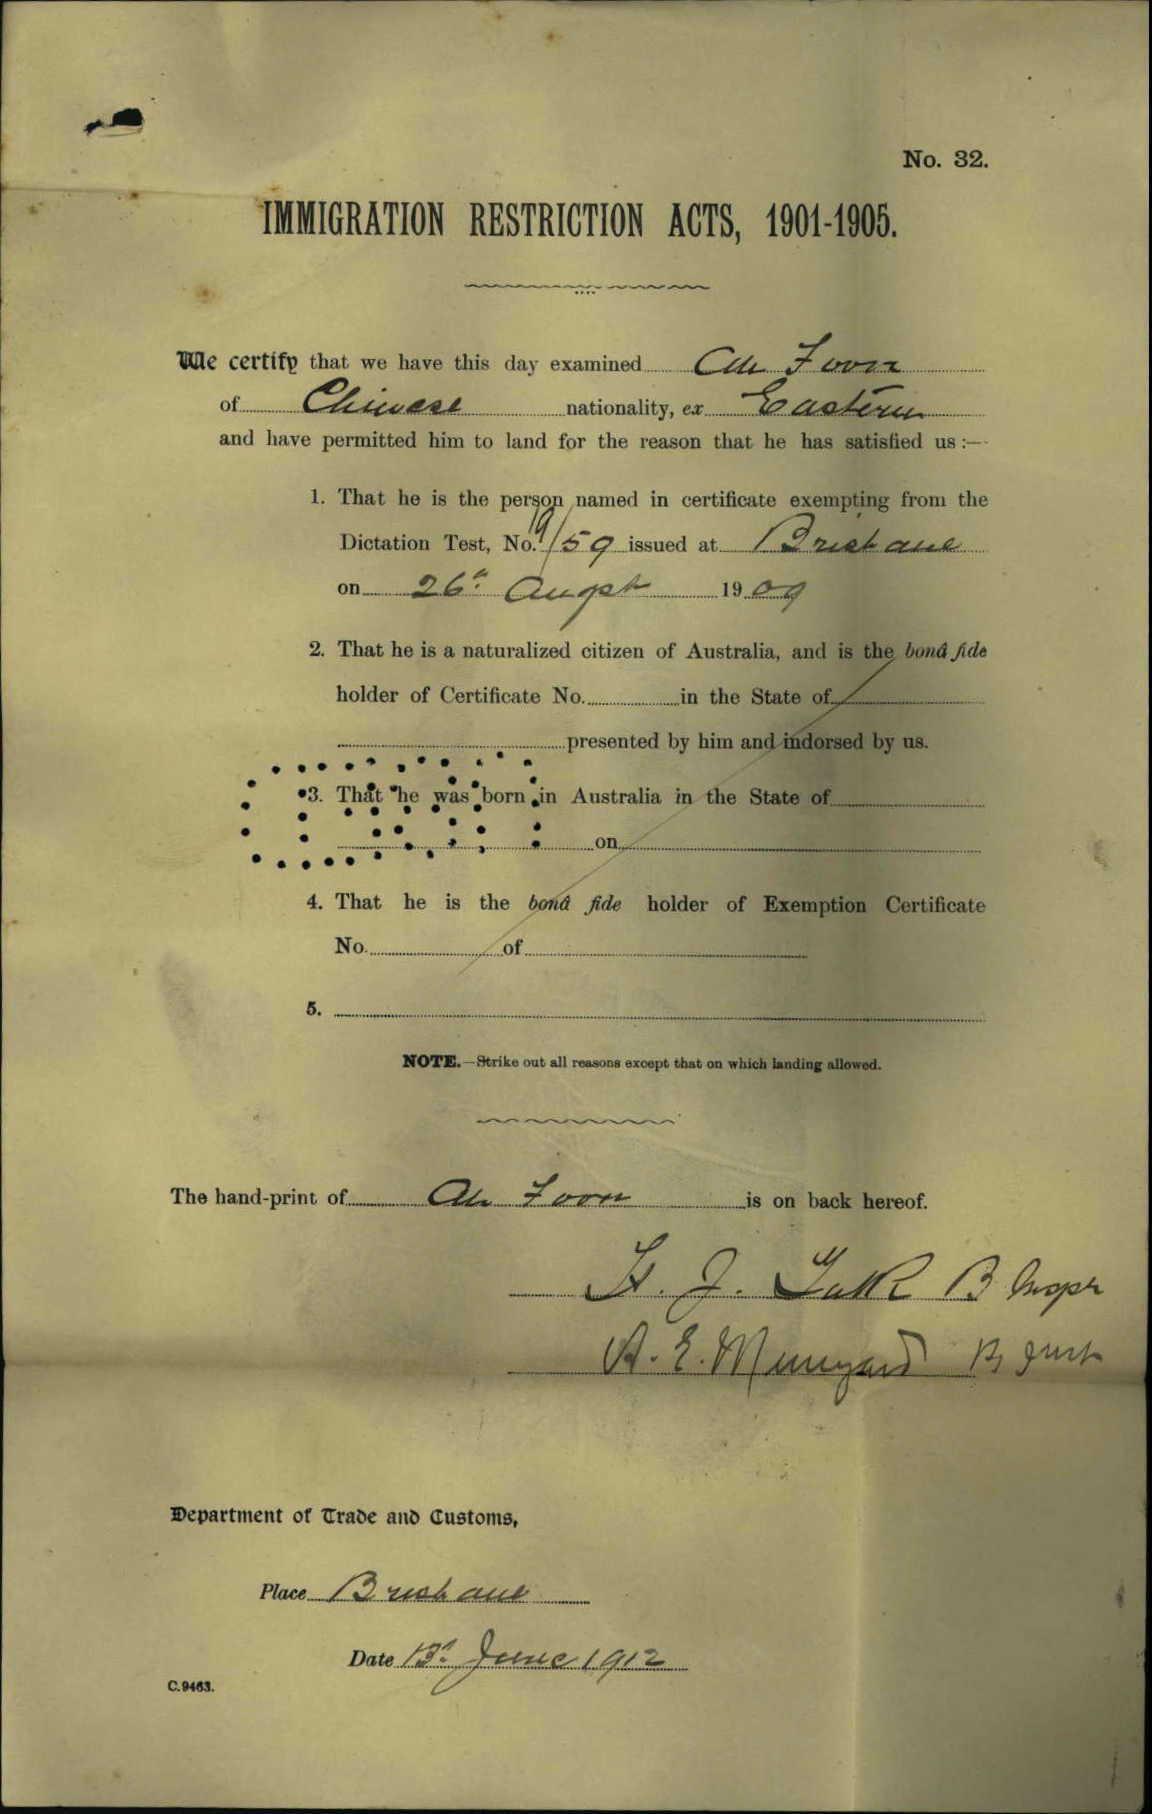 No. 32.
IMMIGRATION RESTRICTION ACTS, 1901-1905.
We certify that we have this day examined Ah Foon
of Chinese nationality, ex Eastern
and have permitted him to land for the reason that he has satisfied us :—
1. That he is the person named in certificate exempting from the
Dictation Test, No. 9/59 issued at Brisbane
on 26th Augst 1909
2. That he is a naturalized citizen of Australia, and is the bonâ fide
holder of Certificate No. in the State of
presented by him and indorsed by us.
3. That he was born in Australia in the State of
on
4. That he is the bonâ fide holder of Exemption Certificate
No. of
5.
NOTE.—Strike out all reasons except that on which landing allowed.
The hand-print of Ah Foon is on back hereof.
H. J. B Inspr
A. E. B
Department of Trade and Customs,
Place Brisbane
Date 13th June 1912
C.9463.